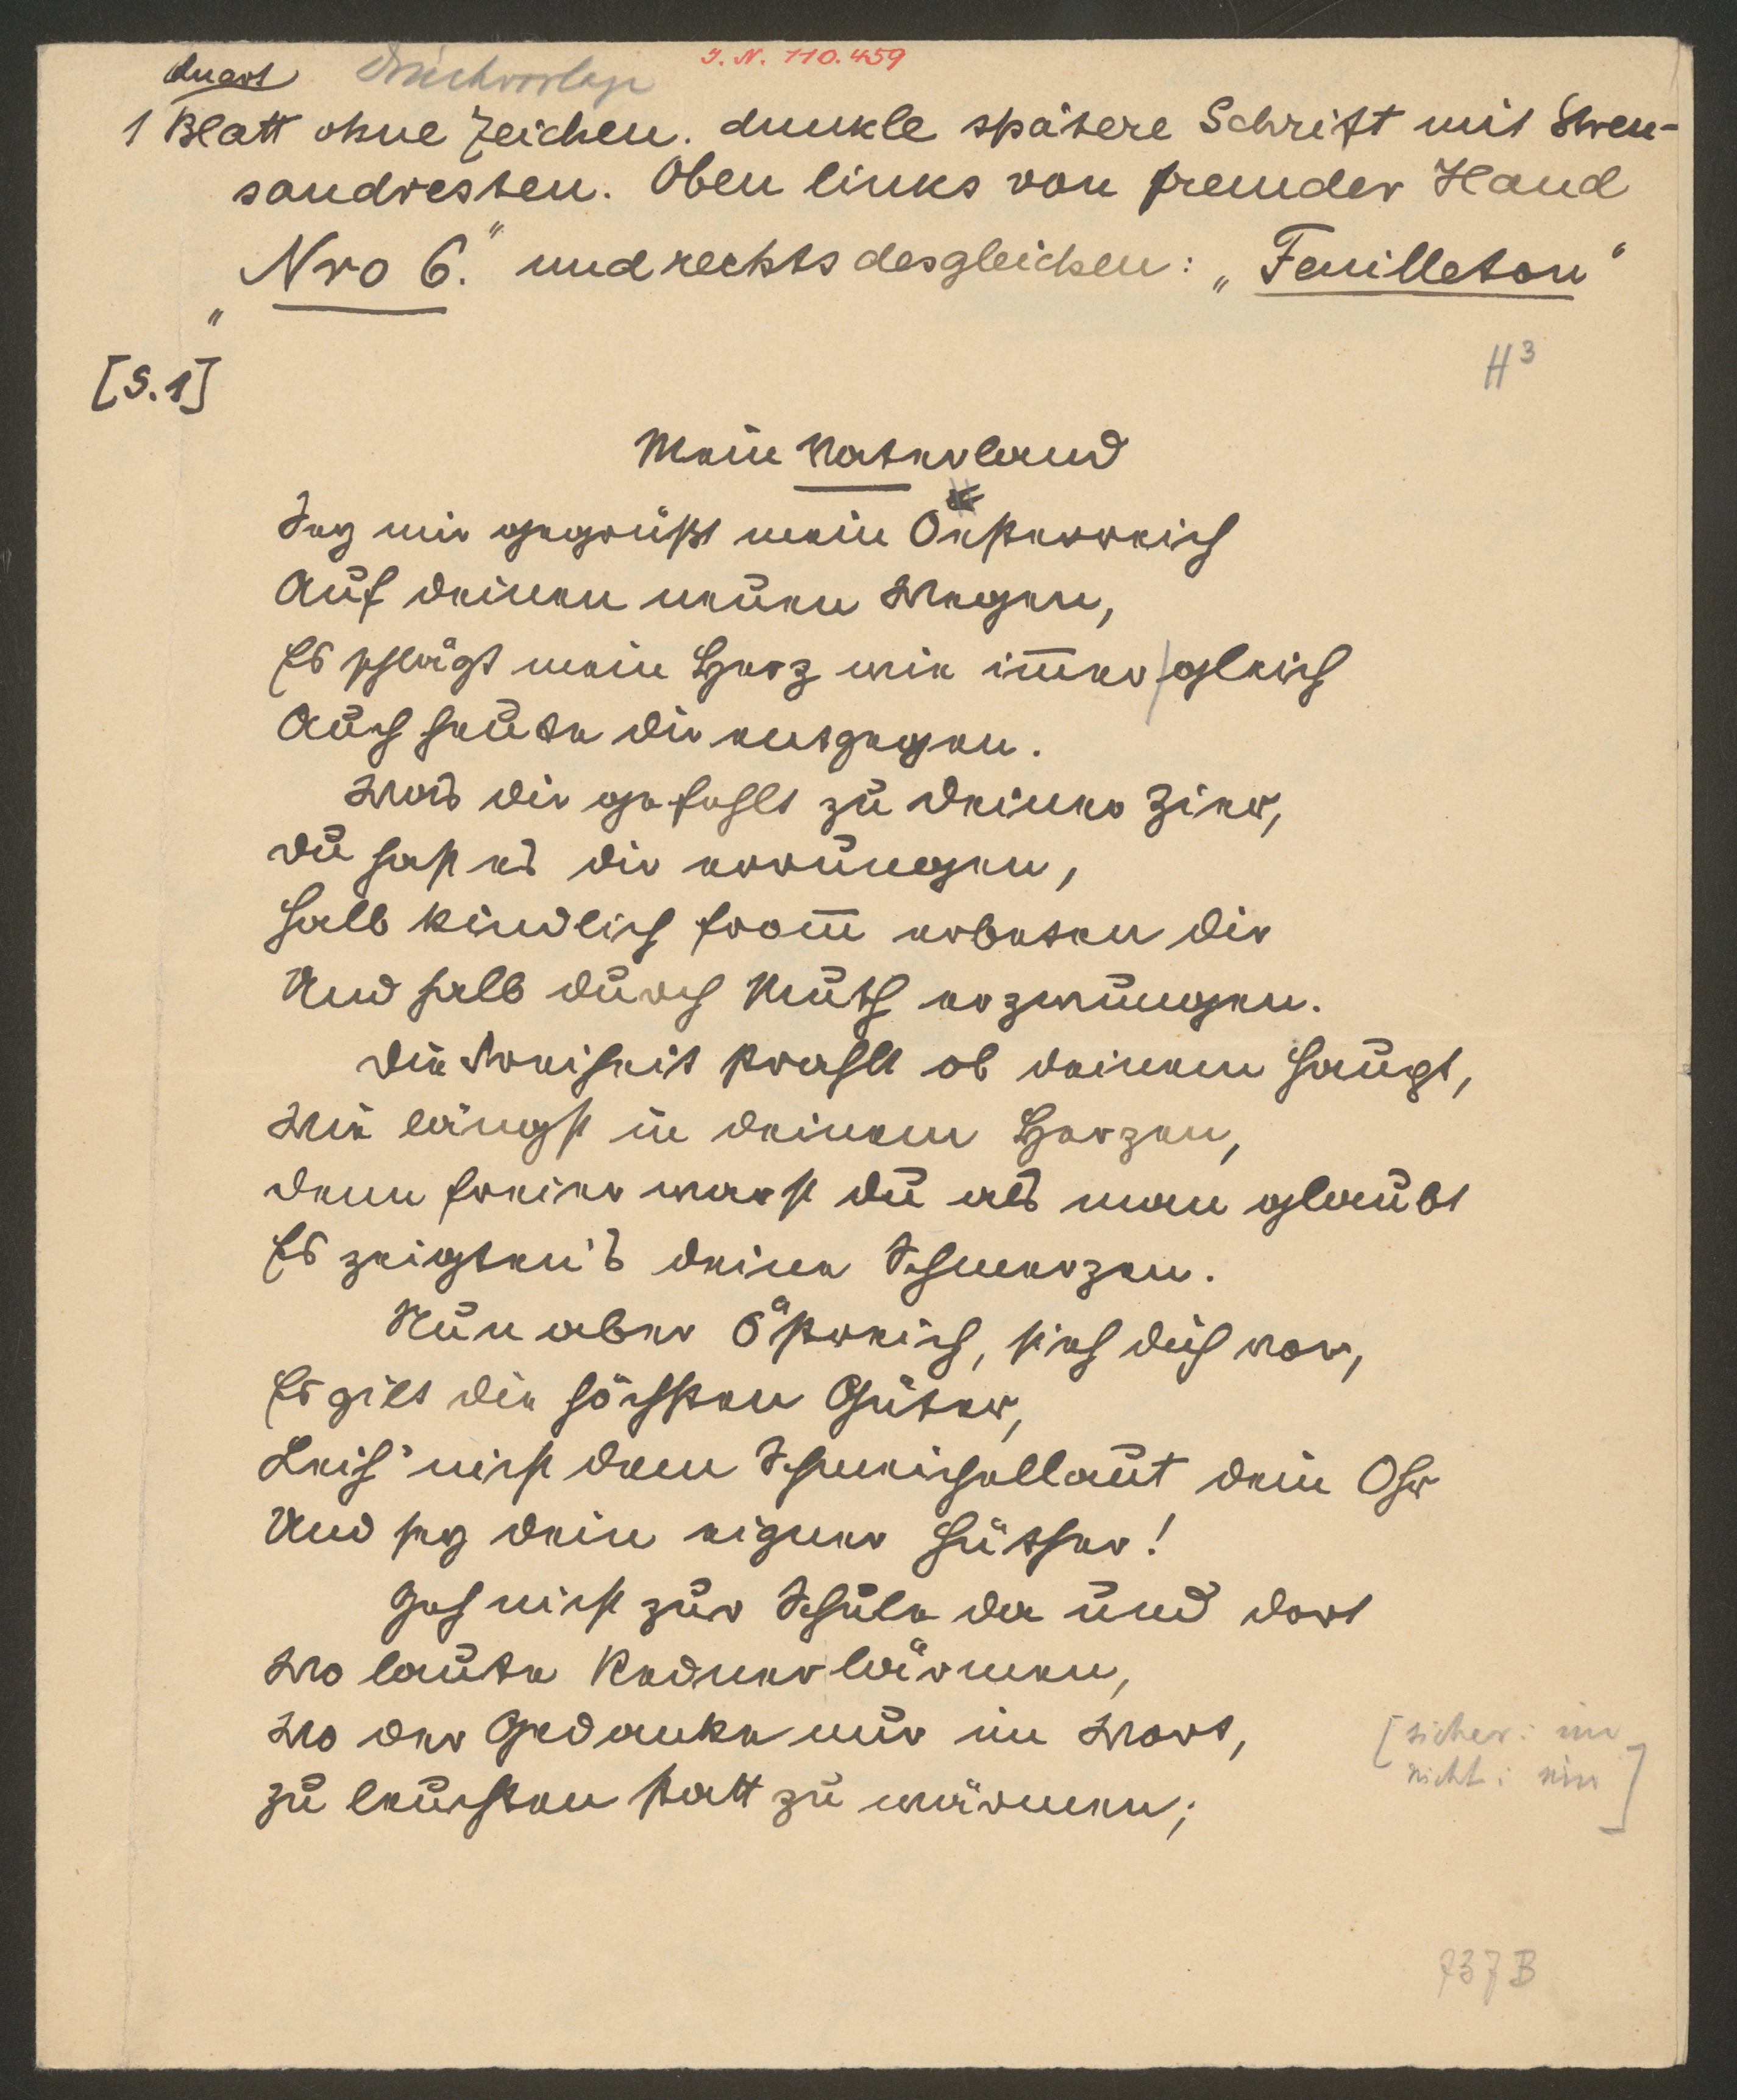 I. N. 110.459
Quart Druckvorlage
1 Blatt ohne Zeichen. dunkle spätere Schrift mit Streu-
sandresten. Oben links von fremder Hand
„Nro 6.“ und rechts desgleichen: „Feuilleton“
[S. 1]
H³
Mein Vaterland
Sey mir gegrüßt mein Oesterreich
Auf deinen neuen Wegen,
Es schlägt mein Herz wie im̅er gleich
Auch heute dir entgegen.
Was dir gefehlt zu deiner Zier,
du hast es dir errungen,
halb kindlich from̅ erbeten dir
Und halb durch Muth erzwungen.
die Freiheit strahlt ob deinem Haupt,
Wie längst in deinem Herzen,
denn freier warst du als man glaubt
Es zeigten's deine Schmerzen.
Nun aber Östreich, sieh dich vor,
Es gilt die höchsten Güter,
Leih' nicht dem Schmeichellaut dein Ohr
Und sey dein eigner Hüther!
Geh nicht zur Schule da und dort
Wo laute Redner lärmen,
Wo der Gedanke nur im Wort,
zu leuchten statt zu wärmen;
[sicher: im
nicht: ein]
737 B